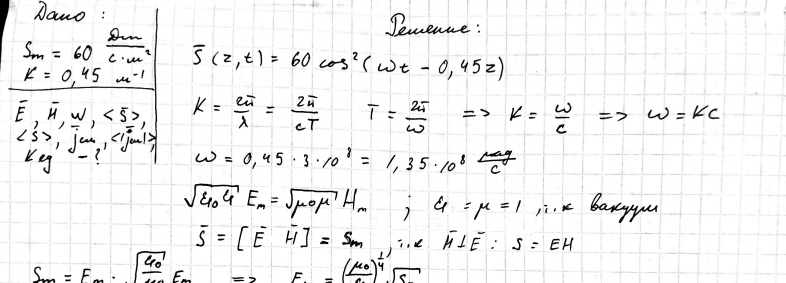 Дано :
Sm = 60 Дж/с·м²
K = 0,45 м⁻¹
Ē, H̄, w, <S>,
<S̄>, jсм, <|jсм|>,
Kед - ?
Решение:
S̄ (z,t) = 60 cos²(ωt - 0,45z)
K = 2π/λ = 2π/cT   T = 2π/ω => K = ω/c => ω = Kc
ω = 0,45 · 3 · 10⁸ = 1,35 · 10⁸ рад/с
√ε₀ε Em = √μ₀μ Hm ; ε = μ = 1 , т.к вакуум
S̄ = [Ē H̄] = Sm , т.к H̄⊥Ē : S = EH
Sm = Em · √ε₀/μ₀ Em =>